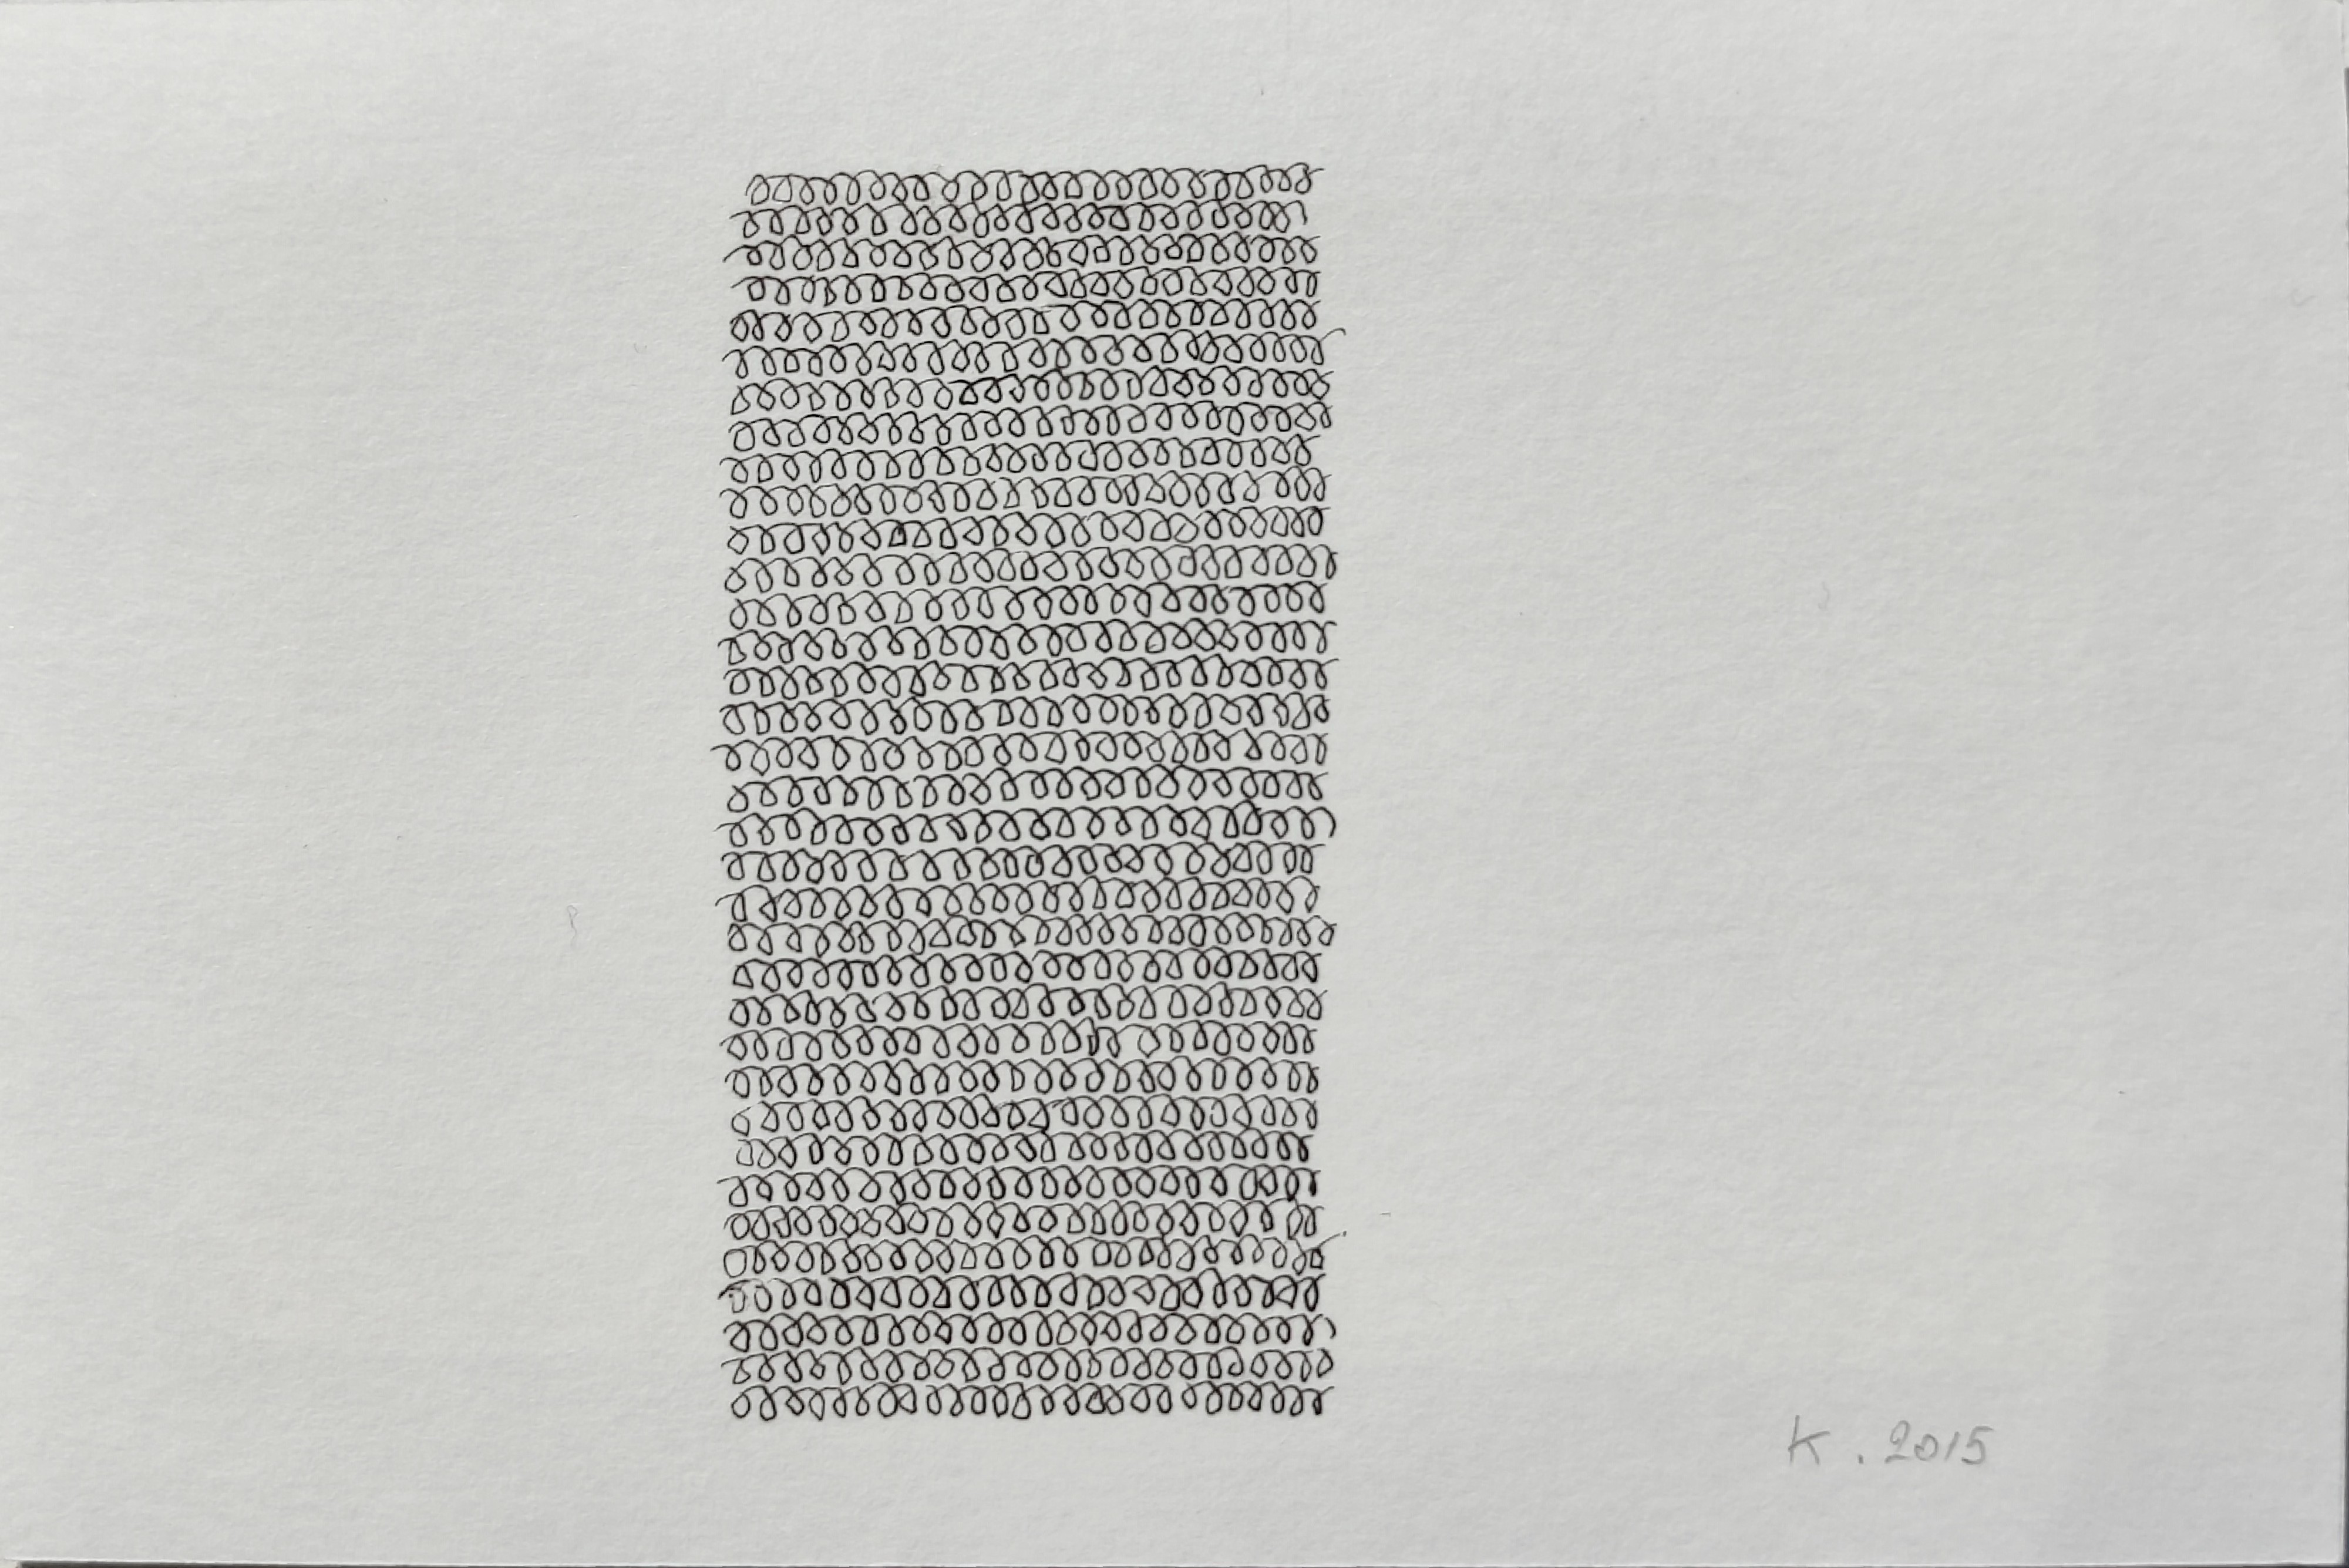 K. 2015